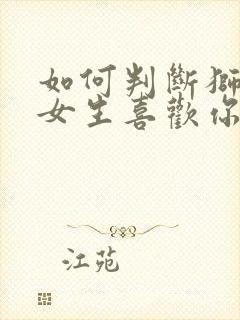 如何判斷獅
女生喜歡你
江苑